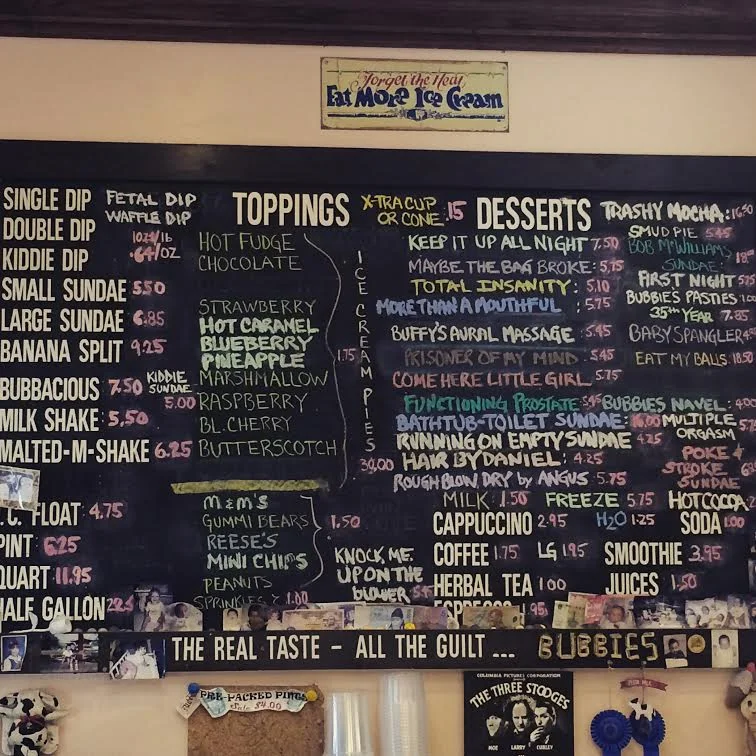 Forget the Heat
Eat More Ice Cream
SINGLE DIP
DOUBLE DIP
KIDDIE DIP
SMALL SUNDAE 5.50
LARGE SUNDAE 6.85
BANANA SPLIT 9.25
BUBBACIOUS 7.50
KIDDIE SUNDAE 5.00
MILK SHAKE 5.50
MALTED-M-SHAKE 6.25
FLOAT 4.75
PINT 6.25
QUART 11.95
HALF GALLON
FETAL DIP
WAFFLE DIP
.64/OZ
TOPPINGS
HOT FUDGE
CHOCOLATE
STRAWBERRY
HOT CARAMEL
BLUEBERRY
PINEAPPLE
MARSHMALLOW
RASPBERRY
BL. CHERRY
BUTTERSCOTCH
1.75
M&M'S
GUMMI BEARS
REESE'S
MINI CHIPS
1.50
PEANUTS
SPRINKLES 1.00
X-TRA CUP
OR CONE .15
ICE CREAM PIES
30.00
KNOCK ME
UP ON THE
BLOWER
DESSERTS
KEEP IT UP ALL NIGHT 7.50
MAYBE THE BAG BROKE: 5.75
TOTAL INSANITY: 5.10
MORE THAN A MOUTHFUL : 5.75
BUFFY'S AURAL MASSAGE 5.45
PRISONER OF MY MIND 5.45
COME HERE LITTLE GIRL 5.75
FUNCTIONING PROSTATE 5.45
BATHTUB-TOILET SUNDAE: 16.00
RUNNING ON EMPTY SUNDAE 4.25
HAIR BY DANIEL: 4.25
ROUGH BLOW DRY by ANGUS 5.75
MILK: 1.50
FREEZE 5.75
HOT COCOA
CAPPUCCINO 2.95
H2O 1.25
SODA 1.00
COFFEE 1.75
LG 1.95
SMOOTHIE 3.95
HERBAL TEA 1.00
JUICES 1.50
ESPRESSO 1.95
TRASHY MOCHA:
SMUD PIE 5.45
BOB McWILLIAMS
SUNDAE:
FIRST NIGHT 5.75
BUBBIE'S PASTIES
35TH YEAR 7.85
BABY SPANGLER
EAT MY BALLS:
BUBBIES NAVEL:
MULTIPLE
ORGASM
POKE &
STROKE
SUNDAE
THE REAL TASTE - ALL THE GUILT ... BUBBIES
PRE-PACKED PINTS
Sale $4.00
COLUMBIA PICTURES CORPORATION
THE THREE STOOGES
MOE LARRY CURLEY